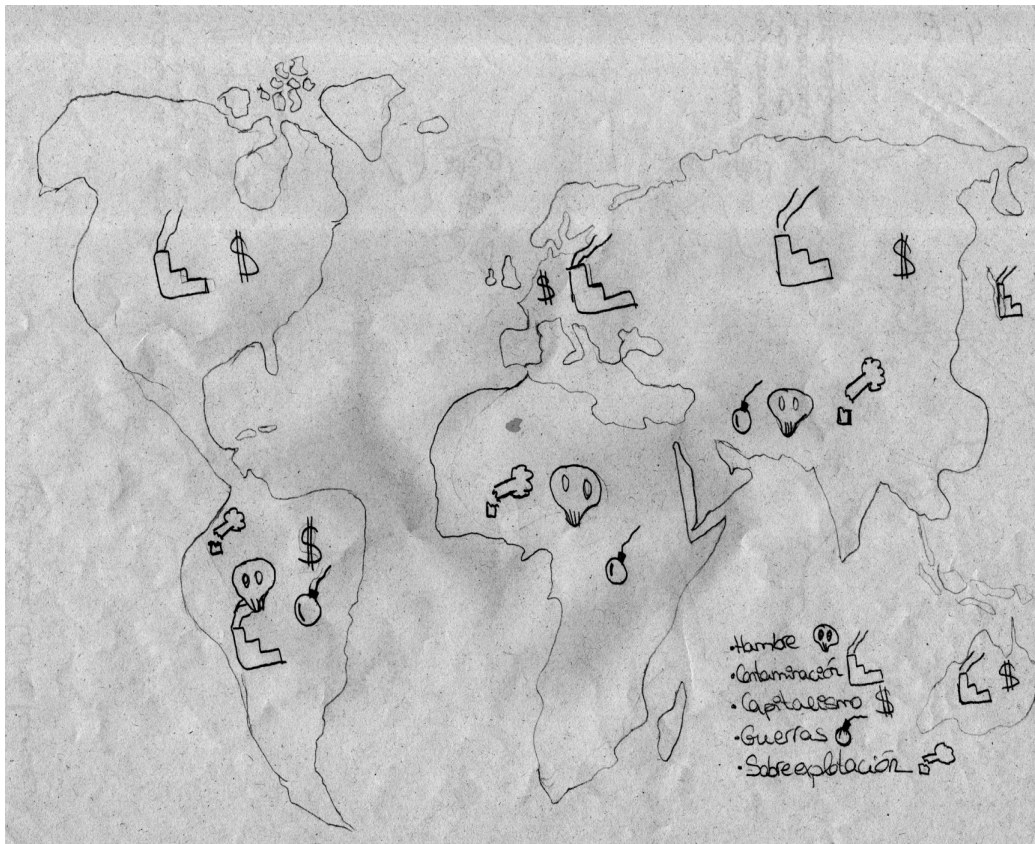 •Hambre
•Contaminación
•Capitalismo $
•Guerras
•Sobreexplotación
$
$
$
$
$